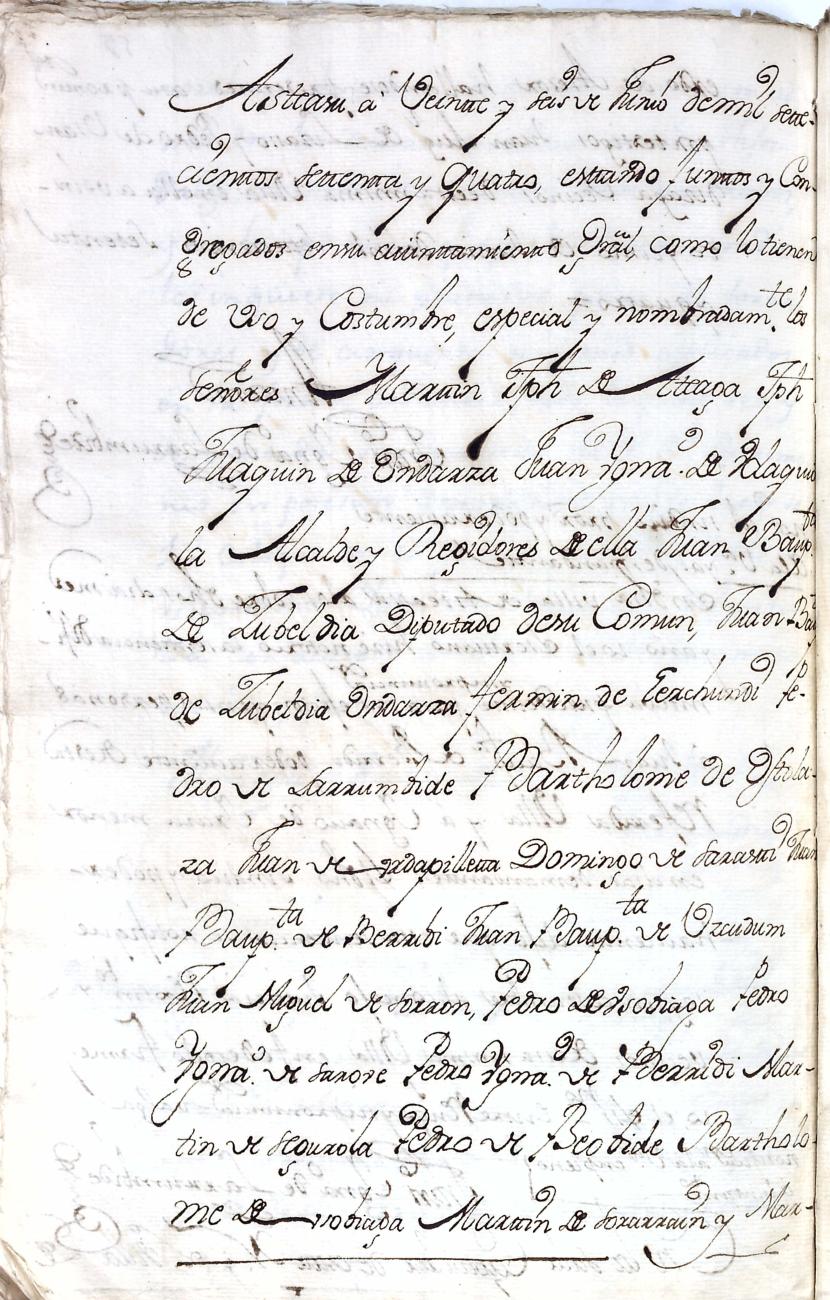 Asteasu a Veinte y seis de Junio de mil sette-
cientos settenta y quatro, estando Junttos y Con-
gregados en su aiunttamiento Gral, como lo tienen
de Uso y Costumbre, especial y nombradam.te los
señores Martin Jph de Arteaga Jph
Juaquin de Ondarza Juan Ygna.o de Olaquive
la Alcalde y Regidores de ella Juan Baup.ta
de Zubeldia Diputado de su Comun, Juan Bap
de Zubeldia Ondarza fermin de Eerchundi Pe-
dro de Larrumbide Bartholome de Ystila-
za Juan de Ordapilleta Domingo de Sarasti Juan
Baup.ta de Berridi Juan Baup.ta de Uzcudum
Juan Miguel de Sorron, Pedro de Ysobiaga Pedro
Ygna.o de Sarove Pedro Ygna.o de Berridi Mar-
tin de Segurola Pedro de Beobide Bartholo-
me de Ysobiaga Martin de Sorarrain y Mar-